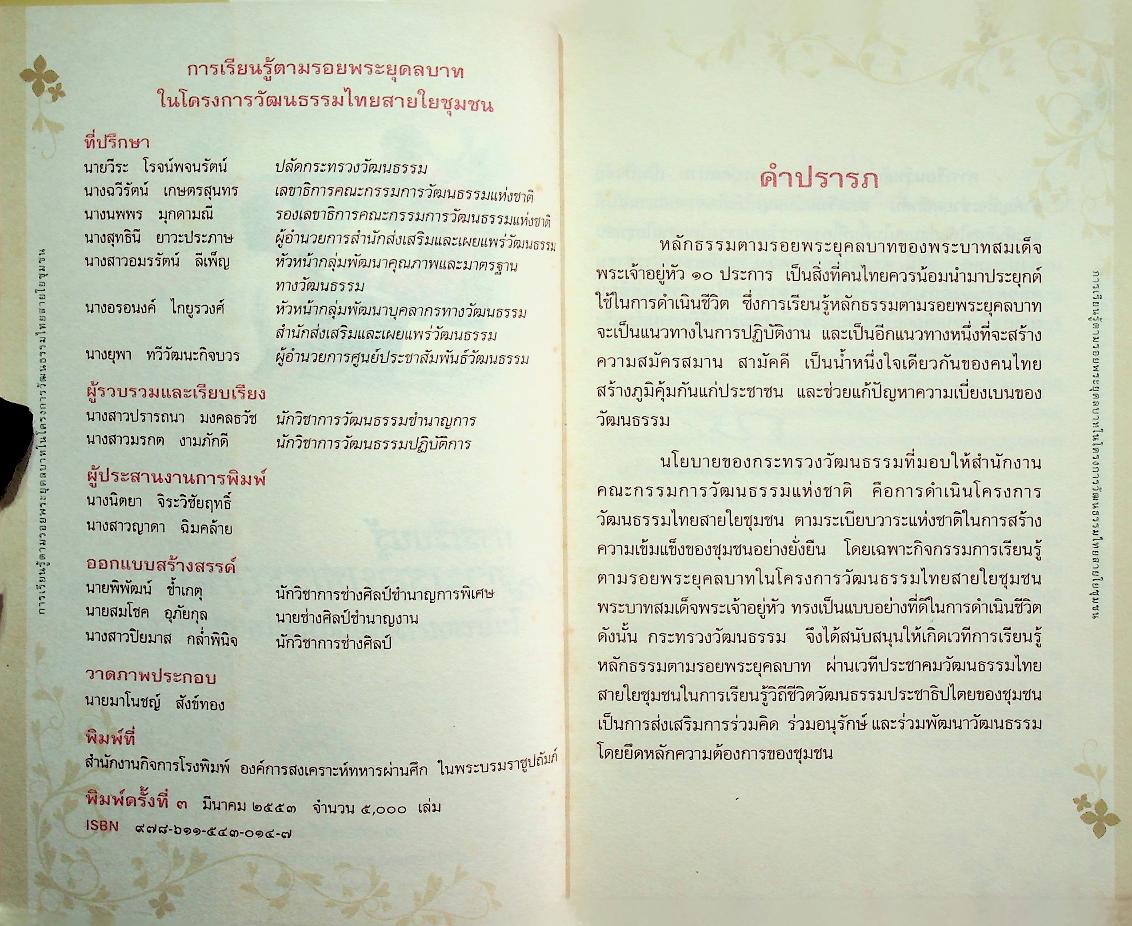 การเรียนรู้ตามรอยพระยุคลบาทในโครงการวัฒนธรรมไทยสายใยชุมชน
การเรียนรู้ตามรอยพระยุคลบาท
ในโครงการวัฒนธรรมไทยสายใยชุมชน
ที่ปรึกษา
นายวีระ โรจน์พจนรัตน์ ปลัดกระทรวงวัฒนธรรม
นางฉวีรัตน์ เกษตรสุนทร เลขาธิการคณะกรรมการวัฒนธรรมแห่งชาติ
นางนพพร มุกดามณี รองเลขาธิการคณะกรรมการวัฒนธรรมแห่งชาติ
นางสุทธินี ยาวะประภาษ ผู้อำนวยการสำนักส่งเสริมและเผยแพร่วัฒนธรรม
นางสาวอมรรัตน์ ลีเพ็ญ หัวหน้ากลุ่มพัฒนาคุณภาพและมาตรฐาน
ทางวัฒนธรรม
นางอรอนงค์ ไกยูรวงศ์ หัวหน้ากลุ่มพัฒนาบุคลากรทางวัฒนธรรม
สำนักส่งเสริมและเผยแพร่วัฒนธรรม
นางยุพา ทวีวัฒนะกิจบวร ผู้อำนวยการศูนย์ประชาสัมพันธ์วัฒนธรรม
ผู้รวบรวมและเรียบเรียง
นางสาวปรารถนา มงคลธวัช นักวิชาการวัฒนธรรมชำนาญการ
นางสาวมรกต งามภักดี นักวิชาการวัฒนธรรมปฏิบัติการ
ผู้ประสานงานการพิมพ์
นางนิตยา จิระวิชัยฤทธิ์
นางสาวญาดา ฉิมคล้าย
ออกแบบสร้างสรรค์
นายพิพัฒน์ ช้ำเกตุ นักวิชาการช่างศิลป์ชำนาญการพิเศษ
นายสมโชค อุภัยกุล นายช่างศิลป์ชำนาญงาน
นางสาวปิยมาส กล่ำพินิจ นักวิชาการช่างศิลป์
วาดภาพประกอบ
นายมาโนชญ์ สังข์ทอง
พิมพ์ที่
สำนักงานกิจการโรงพิมพ์ องค์การสงเคราะห์ทหารผ่านศึก ในพระบรมราชูปถัมภ์
พิมพ์ครั้งที่ ๓ มีนาคม ๒๕๕๓ จำนวน ๕,๐๐๐ เล่ม
ISBN ๙๗๘-๖๑๑-๕๔๓-๐๑๔-๗
คำปรารภ
หลักธรรมตามรอยพระยุคลบาทของพระบาทสมเด็จ
พระเจ้าอยู่หัว ๑๐ ประการ เป็นสิ่งที่คนไทยควรน้อมนำมาประยุกต์
ใช้ในการดำเนินชีวิต ซึ่งการเรียนรู้หลักธรรมตามรอยพระยุคลบาท
จะเป็นแนวทางในการปฏิบัติงาน และเป็นอีกแนวทางหนึ่งที่จะสร้าง
ความสมัครสมาน สามัคคี เป็นน้ำหนึ่งใจเดียวกันของคนไทย
สร้างภูมิคุ้มกันแก่ประชาชน และช่วยแก้ปัญหาความเบี่ยงเบนของ
วัฒนธรรม
นโยบายของกระทรวงวัฒนธรรมที่มอบให้สำนักงาน
คณะกรรมการวัฒนธรรมแห่งชาติ คือการดำเนินโครงการ
วัฒนธรรมไทยสายใยชุมชน ตามระเบียบวาระแห่งชาติในการสร้าง
ความเข้มแข็งของชุมชนอย่างยั่งยืน โดยเฉพาะกิจกรรมการเรียนรู้
ตามรอยพระยุคลบาทในโครงการวัฒนธรรมไทยสายใยชุมชน
พระบาทสมเด็จพระเจ้าอยู่หัว ทรงเป็นแบบอย่างที่ดีในการดำเนินชีวิต
ดังนั้น กระทรวงวัฒนธรรม จึงได้สนับสนุนให้เกิดเวทีการเรียนรู้
หลักธรรมตามรอยพระยุคลบาท ผ่านเวทีประชาคมวัฒนธรรมไทย
สายใยชุมชนในการเรียนรู้วิถีชีวิตวัฒนธรรมประชาธิปไตยของชุมชน
เป็นการส่งเสริมการร่วมคิด ร่วมอนุรักษ์ และร่วมพัฒนาวัฒนธรรม
โดยยึดหลักความต้องการของชุมชน
การเรียนรู้ตามรอยพระยุคลบาทในโครงการวัฒนธรรมไทยสายใยชุมชน